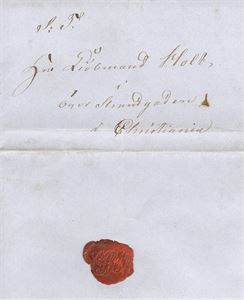 S: T:
Hr. Kjøbmand Holt,
i
övre Strandgaden
i Christiania